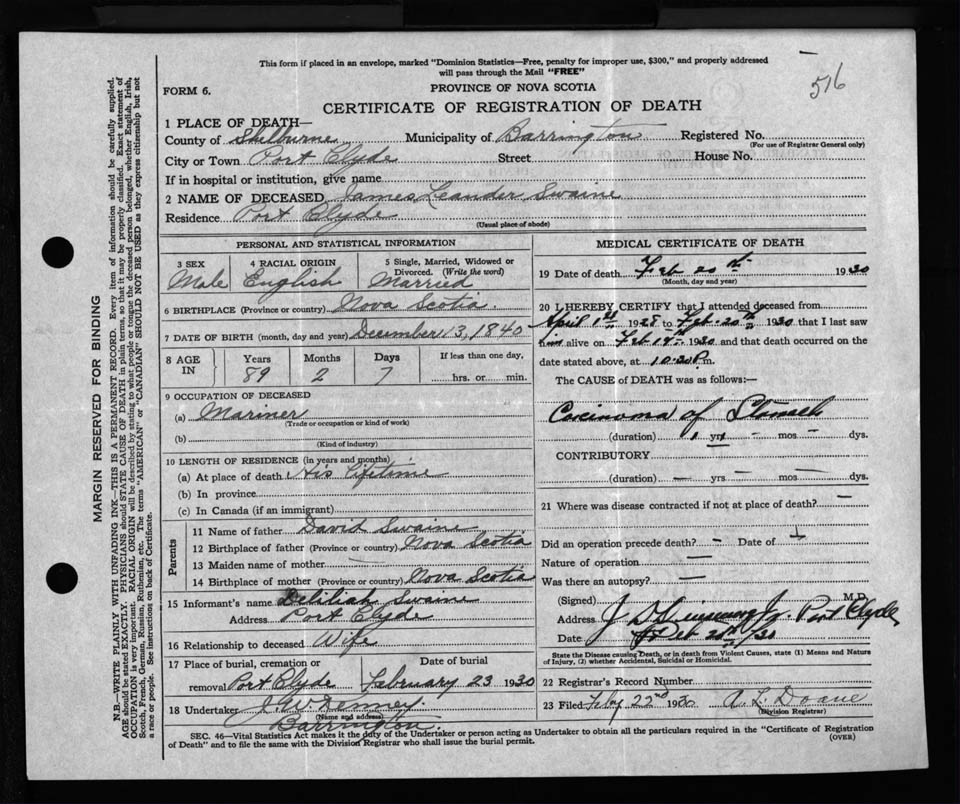 This form if placed in an envelope, marked "Dominion Statistics—Free, penalty for improper use, $300," and properly addressed
will pass through the Mail "FREE"
516
FORM 6.
PROVINCE OF NOVA SCOTIA
CERTIFICATE OF REGISTRATION OF DEATH
1 PLACE OF DEATH—
County of Shelburne Municipality of Barrington Registered No.
(For use of Registrar General only)
City or Town Port Clyde Street House No.
If in hospital or institution, give name
2 NAME OF DECEASED James Leander Swaine
Residence Port Clyde
(Usual place of abode)
PERSONAL AND STATISTICAL INFORMATION
3 SEX 4 RACIAL ORIGIN 5 Single, Married, Widowed or
Divorced. (Write the word)
Male English Married
6 BIRTHPLACE (Province or country) Nova Scotia.
7 DATE OF BIRTH (month, day and year) December 13, 1840
8 AGE IN Years Months Days If less than one day,
89 2 7 hrs. or min.
9 OCCUPATION OF DECEASED
(a) Mariner
(Trade or occupation or kind of work)
(b)
(Kind of industry)
10 LENGTH OF RESIDENCE (in years and months)
(a) At place of death His Lifetime
(b) In province
(c) In Canada (if an immigrant)
Parents
11 Name of father David Swaine
12 Birthplace of father (Province or country) Nova Scotia
13 Maiden name of mother —
14 Birthplace of mother (Province or country) Nova Scotia
15 Informant's name Deliliah Swaine
Address Port Clyde
16 Relationship to deceased Wife
17 Place of burial, cremation or Date of burial
removal Port Clyde February 23 1930
18 Undertaker J. W. Kenney.
(Name and address)
Barrington
MEDICAL CERTIFICATE OF DEATH
19 Date of death Feb 20th 1930
(Month, day and year)
20 I HEREBY CERTIFY that I attended deceased from
April 1st 1928 to Feb. 20th 1930 that I last saw
him alive on Feb 19th 1930 and that death occurred on the
date stated above, at 10:30 P.m.
The CAUSE OF DEATH was as follows:—
Carcinoma of Stomach
(duration) 1 yrs — mos — dys.
CONTRIBUTORY
(duration) — yrs — mos — dys.
21 Where was disease contracted if not at place of death? —
Did an operation precede death? — Date of
Nature of operation —
Was there an autopsy? —
(Signed) M.D.
Address Port Clyde
Date Feb 20th/30
State the Disease causing Death, or in death from Violent Causes, state (1) Means and Nature
of Injury, (2) whether Accidental, Suicidal or Homicidal.
22 Registrar's Record Number
23 Filed Feby 22nd 1930 A. L. Doane
(Division Registrar)
SEC. 46—Vital Statistics Act makes it the duty of the Undertaker or person acting as Undertaker to obtain all the particulars required in the "Certificate of Registration
of Death" and to file the same with the Division Registrar who shall issue the burial permit. (OVER)
MARGIN RESERVED FOR BINDING
N.B.—WRITE PLAINLY WITH UNFADING INK—THIS IS A PERMANENT RECORD. Every item of information should be carefully supplied.
AGE should be stated EXACTLY. PHYSICIANS should STATE CAUSE OF DEATH in plain terms, so that it may be properly classified. Exact statement of
OCCUPATION is very important. RACIAL ORIGIN will be described by stating to what people or tongue the deceased person belonged, whether English, Irish,
Scotch, French, German, Russian, Ruthenian, etc. The terms "AMERICAN" or "CANADIAN" SHOULD NOT BE USED as they express citizenship but not
a race or people. See instructions on back of Certificate.